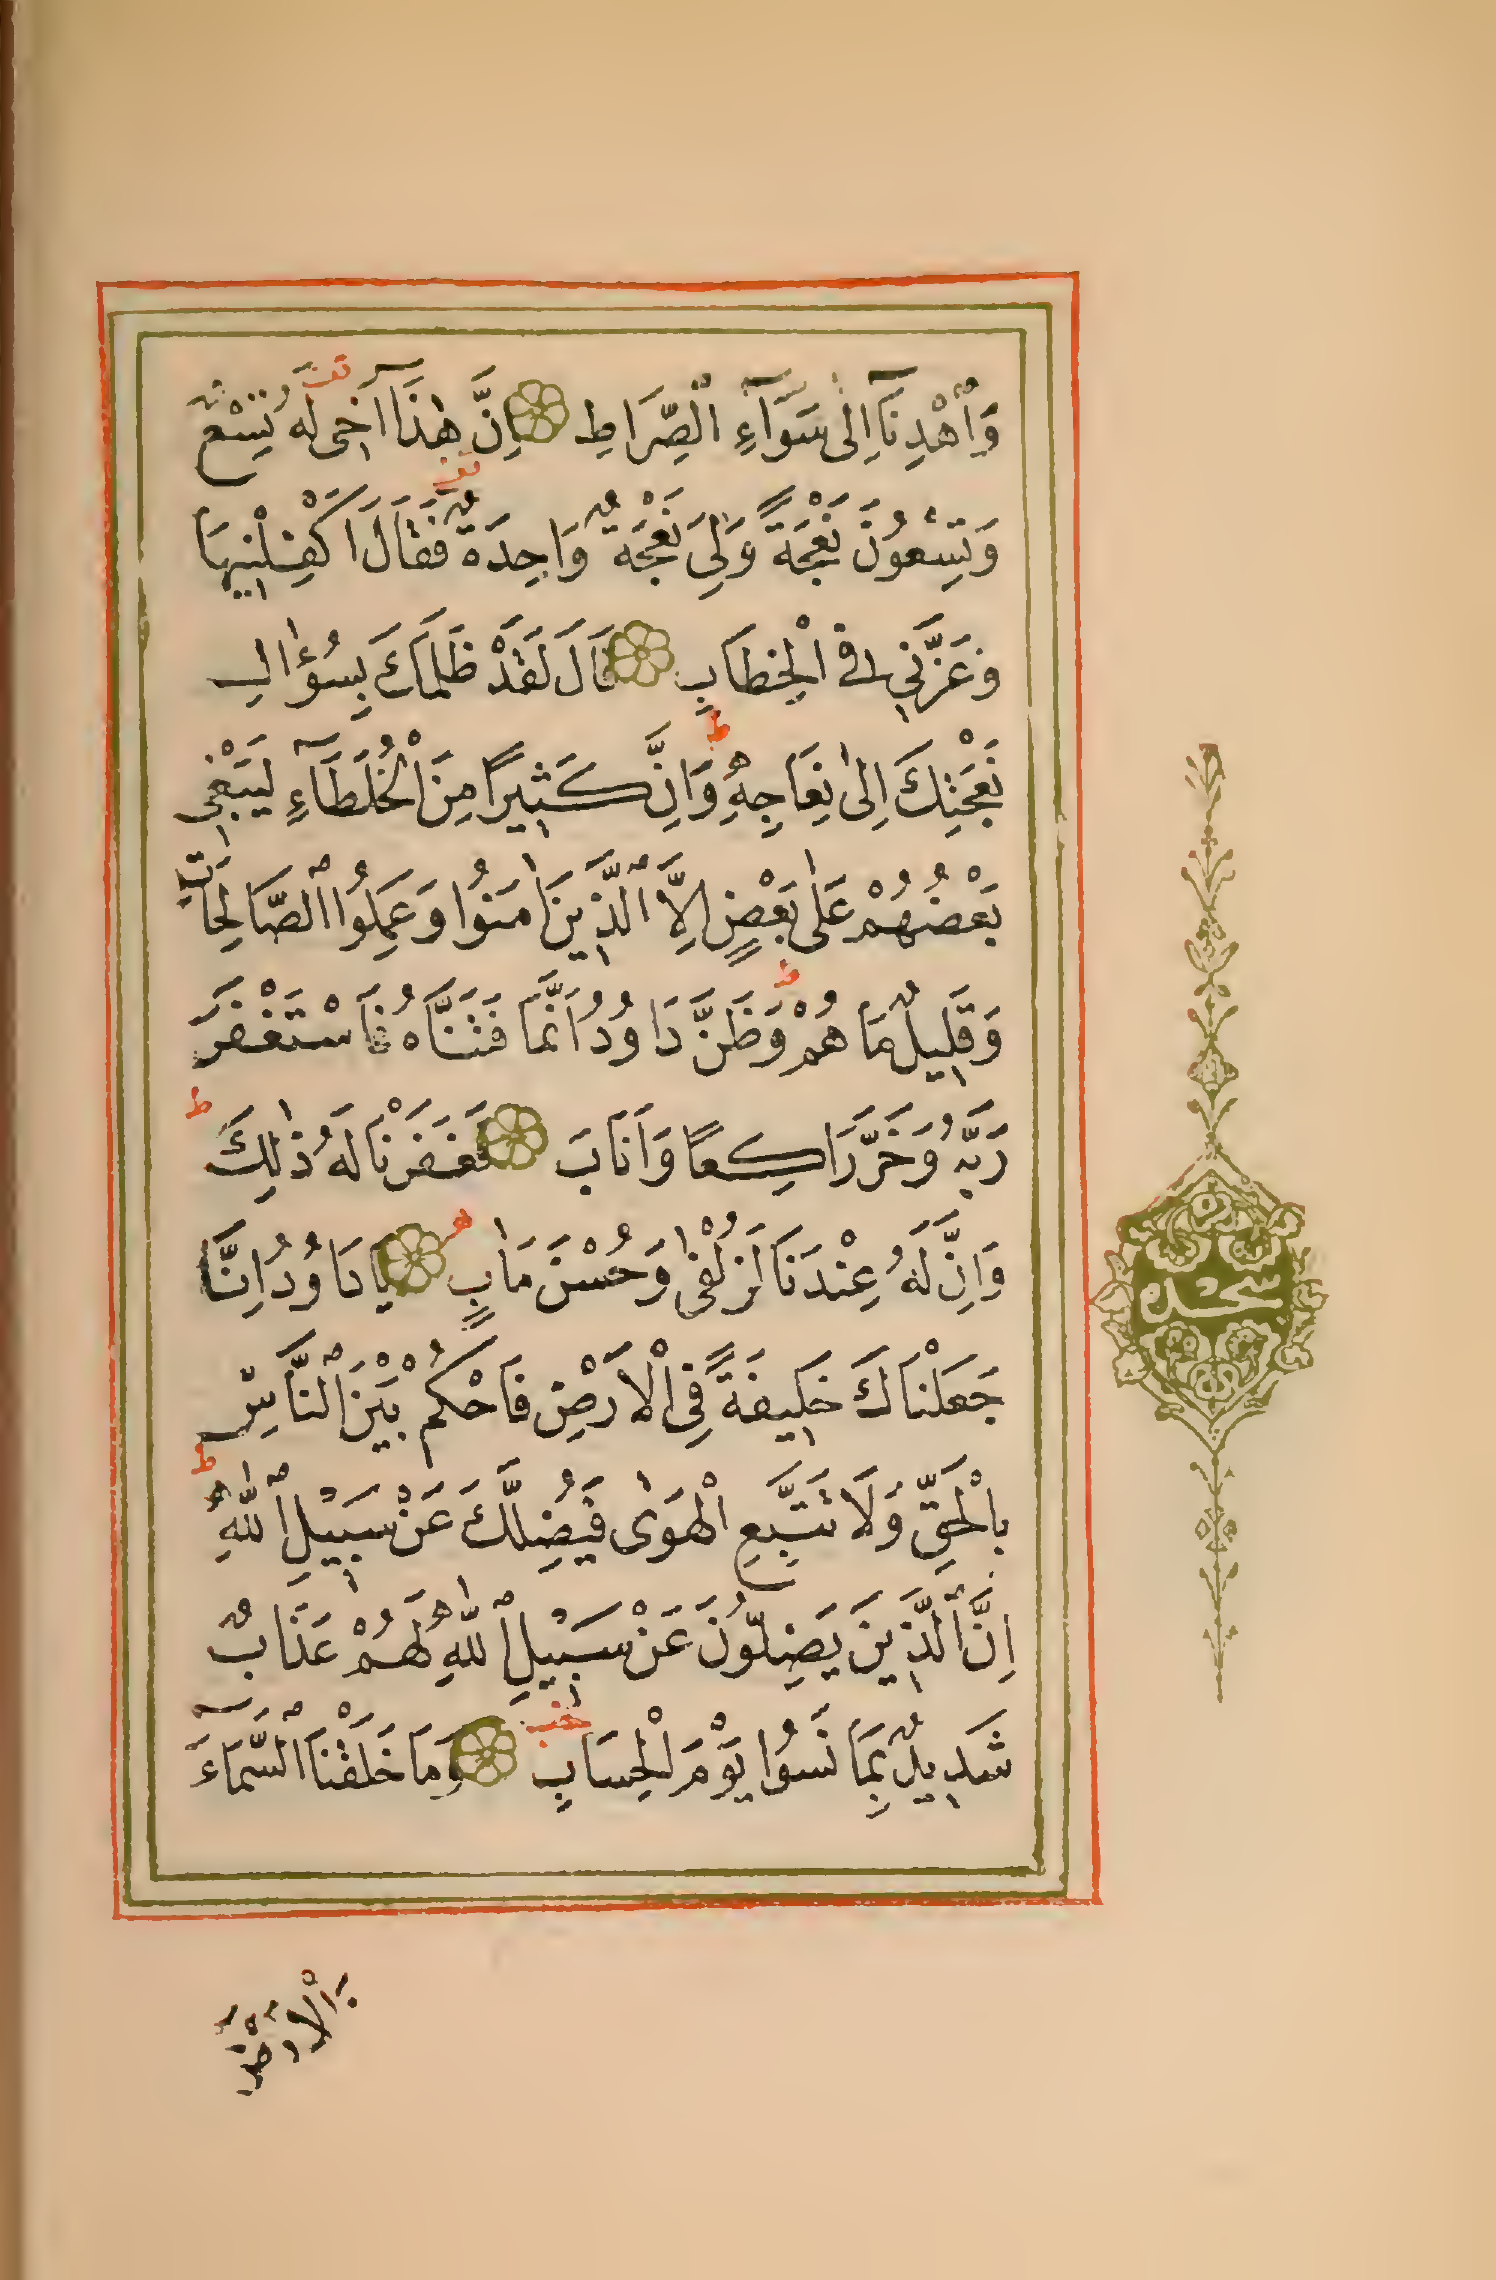 وَاهْدِنَٓا اِلٰى سَوَٓاءِ الصِّرَاطِ اِنَّ هٰذَٓا اَخ۪ى لَهُ تِسْعٌ
وَتِسْعُونَ نَعْجَةً وَلِىَ نَعْجَةٌ وَاحِدَةٌ فَقَالَ اَكْفِلْن۪يهَا
وَعَزَّن۪ى فِى الْخِطَابِ قَالَ لَقَدْ ظَلَمَكَ بِسُؤٰالِ
نَعْجَتِكَ اِلٰى نِعَاجِهِ وَاِنَّ كَث۪يرًا مِنَ الْخُلَطَٓاءِ لَيَبْغ۪ى
بَعْضُهُمْ عَلٰى بَعْضٍ اِلَّا الَّذ۪ينَ اٰمَنُوا وَعَمِلُوا الصَّالِحَاتِ
وَقَل۪يلٌ مَا هُمْ وَظَنَّ دَاوُدُ اَنَّمَا فَتَنَّاهُ فَاسْتَغْفَرَ
رَبَّهُ وَخَرَّ رَاكِعًا وَاَنَابَ فَغَفَرْنَا لَهُ ذٰلِكَ
وَاِنَّ لَهُ عِنْدَنَا لَزُلْفٰى وَحُسْنَ مَاٰبٍ يَا دَاوُدُ اِنَّا
جَعَلْنَاكَ خَل۪يفَةً فِى الْاَرْضِ فَاحْكُمْ بَيْنَ النَّاسِ
بِالْحَقِّ وَلَا تَتَّبِعِ الْهَوٰى فَيُضِلَّكَ عَنْ سَب۪يلِ اللّٰهِ
اِنَّ الَّذ۪ينَ يَضِلُّونَ عَنْ سَب۪يلِ اللّٰهِ لَهُمْ عَذَابٌ
شَد۪يدٌ بِمَا نَسُوا يَوْمَ الْحِسَابِ وَمَا خَلَقْنَا السَّمَٓاءَ
سجده
وَالْاَرْضَ